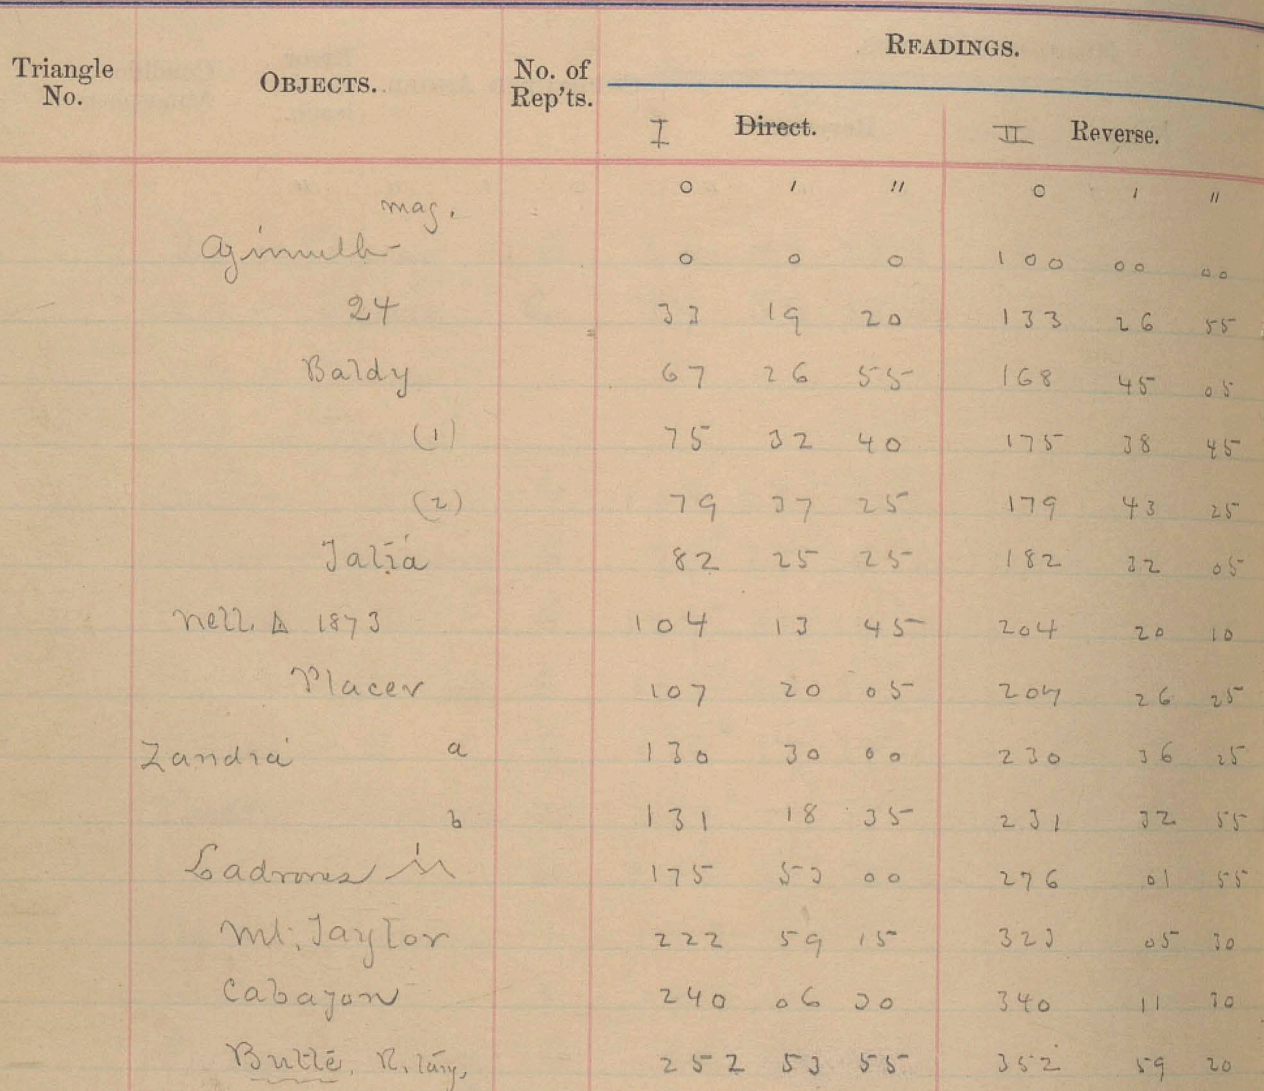 READINGS.
Triangle No. OBJECTS. No. of Rep'ts. I Direct. II Reverse.
° ′ ″ ° ′ ″
mag.
Azimuth 0 0 0 100 00 00
24 33 19 20 133 26 55
Baldy 67 26 55 168 45 05
(1) 75 32 40 175 38 45
(2) 79 37 25 179 43 25
82 25 25 182 32 05
Nell △ 1873 104 13 45 204 20 10
Placer 107 20 05 207 26 25
Zandia a 130 30 00 230 36 25
b 131 18 35 231 32 55
Ladrones 175 53 00 276 01 55
Mt. Taylor 222 59 15 323 05 30
Cabazon 240 06 30 340 11 30
Butte, R. 252 53 55 352 59 20